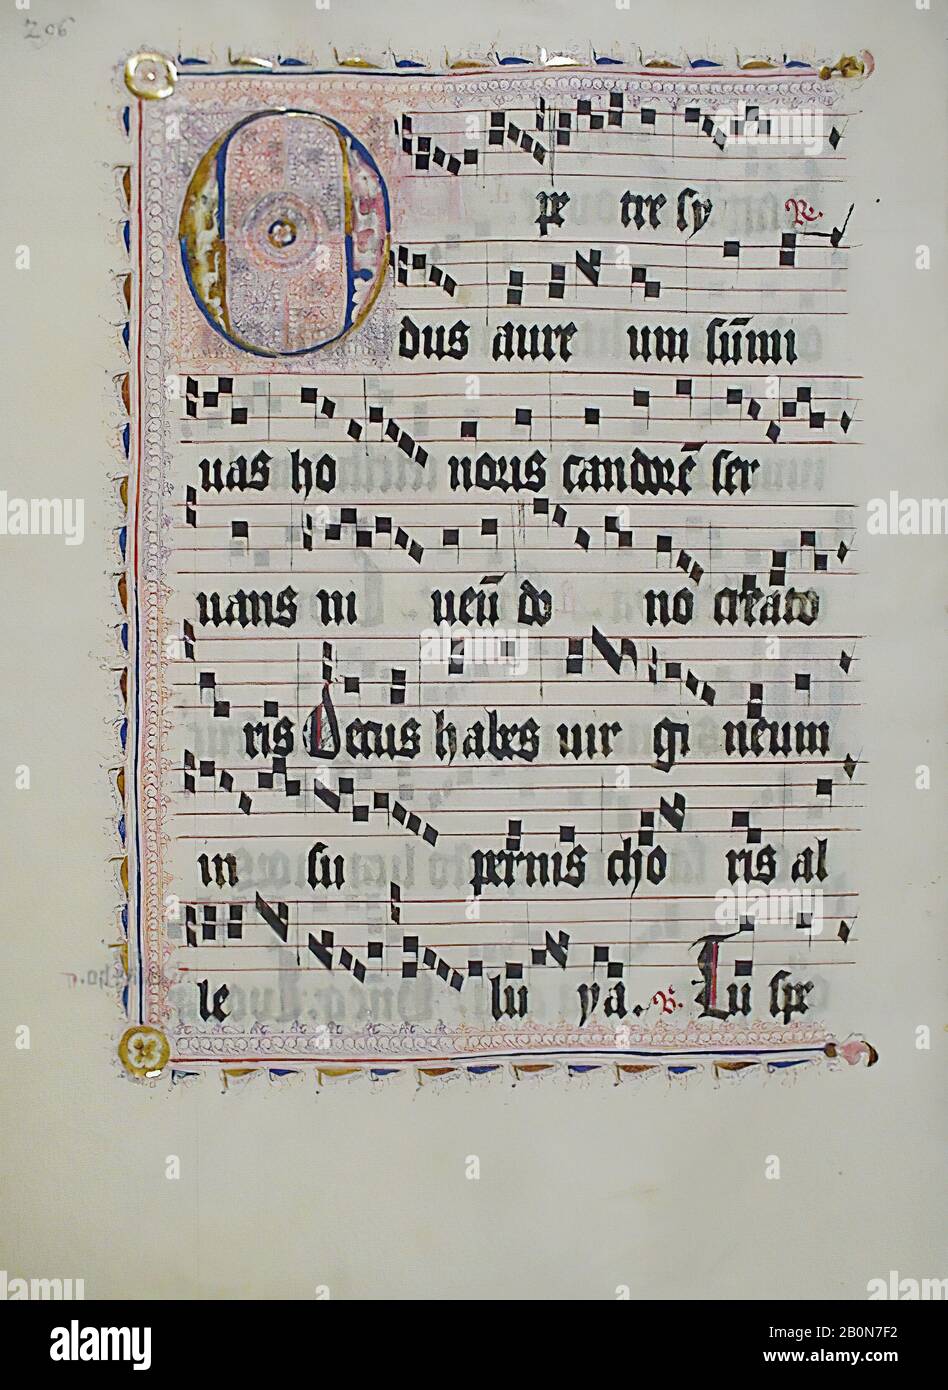 296
O pe tre sy R.
dus aure um sūmi
uas ho noris candorē ser
uans in ueū do no creato
ris Decus habes uir gi neum
in su pernis cho ris al
le lu ya. V. Tu spe
alamy
Image ID: 2B0N7F2
www.alamy.com